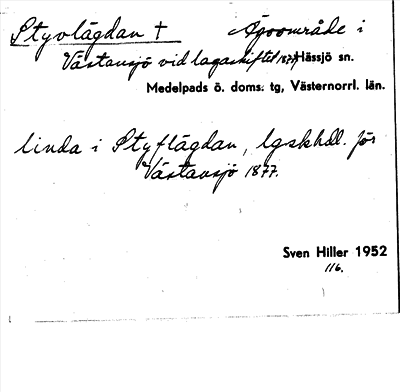 Styvlägdan † Ägoområde i
Västansjö vid lagaskiftet 1877 Hässjö sn.
Medelpads ö. doms. tg, Västernorrl. län.
linda i Styflägdan, lgskhdl. för
Västansjö 1877.
Sven Hiller 1952
116.